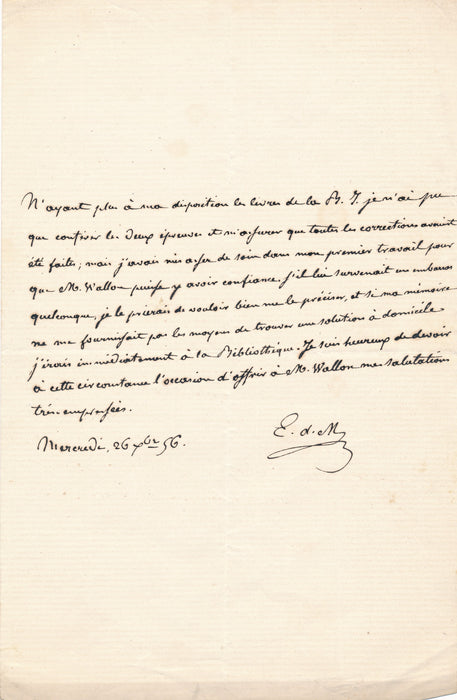 N'ayant plus à ma disposition les livres de la B. I. je n'ai pu
que conférer les deux épreuves et m'assurer que toutes les corrections avaient
été faites; mais j'avais mis assez de soin dans mon premier travail pour
que M. Wallon puisse y avoir confiance. S'il lui survenait un embarras
quelconque, je le prierais de vouloir bien me le préciser, et si ma mémoire
ne me fournissait pas les moyens de trouver une solution à domicile
j'irais immédiatement à la Bibliothèque. Je suis heureux de devoir
à cette circonstance l'occasion d'offrir à M. Wallon mes salutations
très-empressées.
E. d. M
Mercredi, 26 Xbre 56.